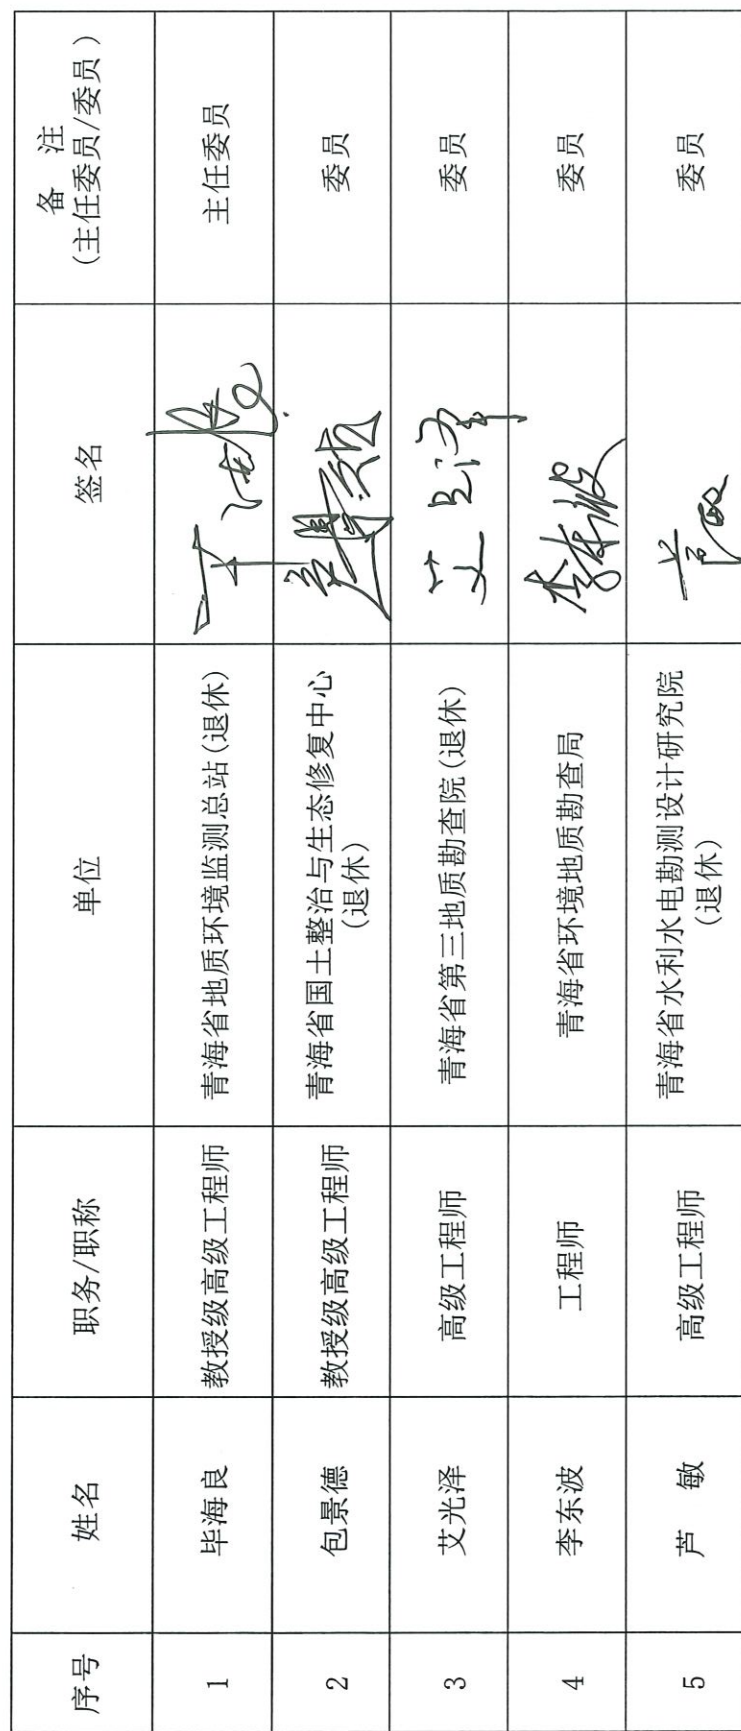 序号 姓名 职务/职称 单位 签名 备 注
(主任委员/委员)
1 毕海良 教授级高级工程师 青海省地质环境监测总站(退休) 主任委员
2 包景德 教授级高级工程师 青海省国土整治与生态修复中心
(退休) 委员
3 艾光泽 高级工程师 青海省第三地质勘查院(退休) 委员
4 李东波 工程师 青海省环境地质勘查局 李东波 委员
5 芦 敏 高级工程师 青海省水利水电勘测设计研究院
(退休) 委员